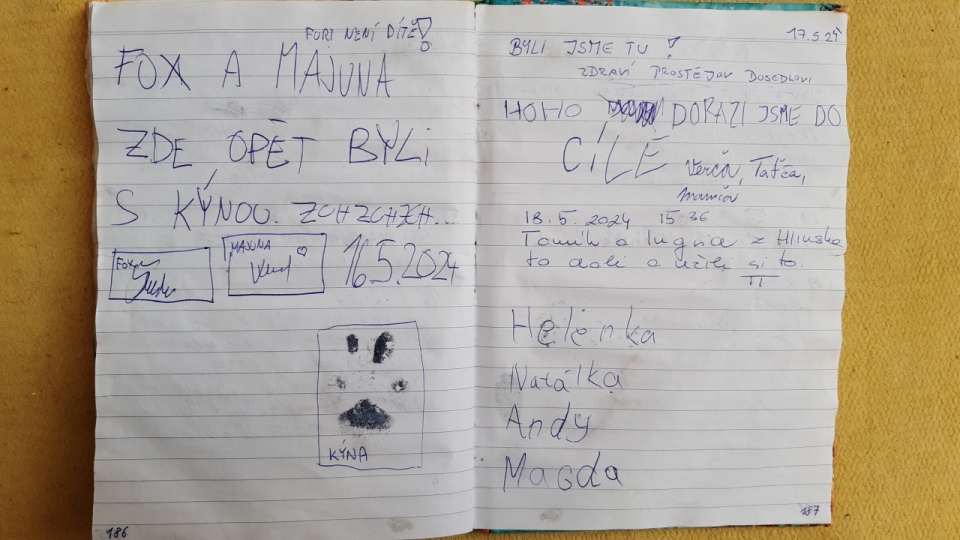 FURT NENÍ DÍTĚ!
FOX A MAJUNA
ZDE OPĚT BYLI
S KÝNOU. ZCHZCHZH...
FOX
MAJUNA
16.5.2024
KÝNA
186
17.5.24
BYLI JSME TU !
ZDRAVÍ PROSTĚJOV DOSEDLOVI
HOHO DORAZI JSME DO
CÍLE Verča, Taťča,
mamča
18.5. 2024 15:36
Tomík a Ingrid z Hlinska
to dali a užili si to.
Helenka
Natálka
Andy
Magda
187